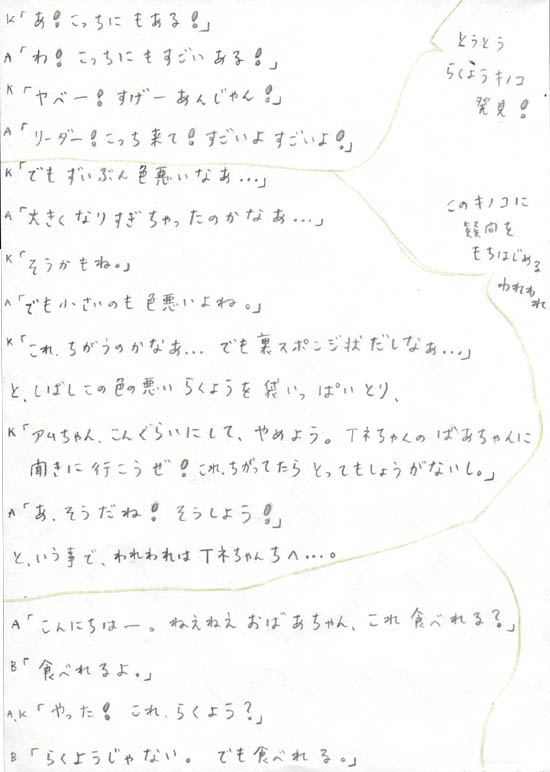 K「あ！こっちにもある！」
A「わ！こっちにもすごいある！」
K「ヤベー！すげーあんじゃん！」
A「リーダー！こっち来て！すごいよすごいよ！」
とうとう
らくようキノコ
発見！
K「でもずいぶん色悪いなあ…」
A「大きくなりすぎちゃったのかなあ…」
K「そうかもね。」
A「でも小さいのも色悪いよね。」
K「これ、ちがうのかなあ… でも裏スポンジ状だしなぁ…」
と、しばしこの色の悪いらくようを袋いっぱいとり、
K「アムちゃん、こんぐらいにして、やめよう。Tネちゃんのばあちゃんに
聞きに行こうぜ！これ、ちがってたらとってもしょうがないし。」
A「あ、そうだね！そうしよう！」
と、いう事で、われわれはTネちゃんちへ…。
このキノコに
疑問を
もちはじめる
われわれ
A「こんにちはー。ねえねえおばあちゃん、これ食べれる？」
B「食べれるよ。」
A,K「やった！これ、らくよう？」
B「らくようじゃない。でも食べれる。」